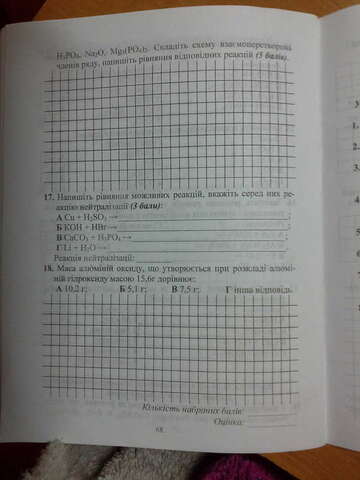 H₃PO₄, Na₂O, Mg₃(PO₄)₂. Складіть схему взаємоперетворень
членів ряду, напишіть рівняння відповідних реакцій (5 балів).
17. Напишіть рівняння можливих реакцій, вкажіть серед них ре-
акцію нейтралізації (3 бали):
А Cu + H₂SO₄ → ;
Б KOH + HBr→ ;
В CaCO₃ + H₃PO₄→ ;
Г Li + H₂O →
Реакція нейтралізації:
18. Маса алюміній оксиду, що утворюється при розкладі алюмі-
ній гідроксиду масою 15,6г дорівнює:
А 10,2 г; Б 5,1 г; В 7,5 г; Г інша відповідь.
Кількість набраних балів:
Оцінка:
68
3
1.
2.
3.